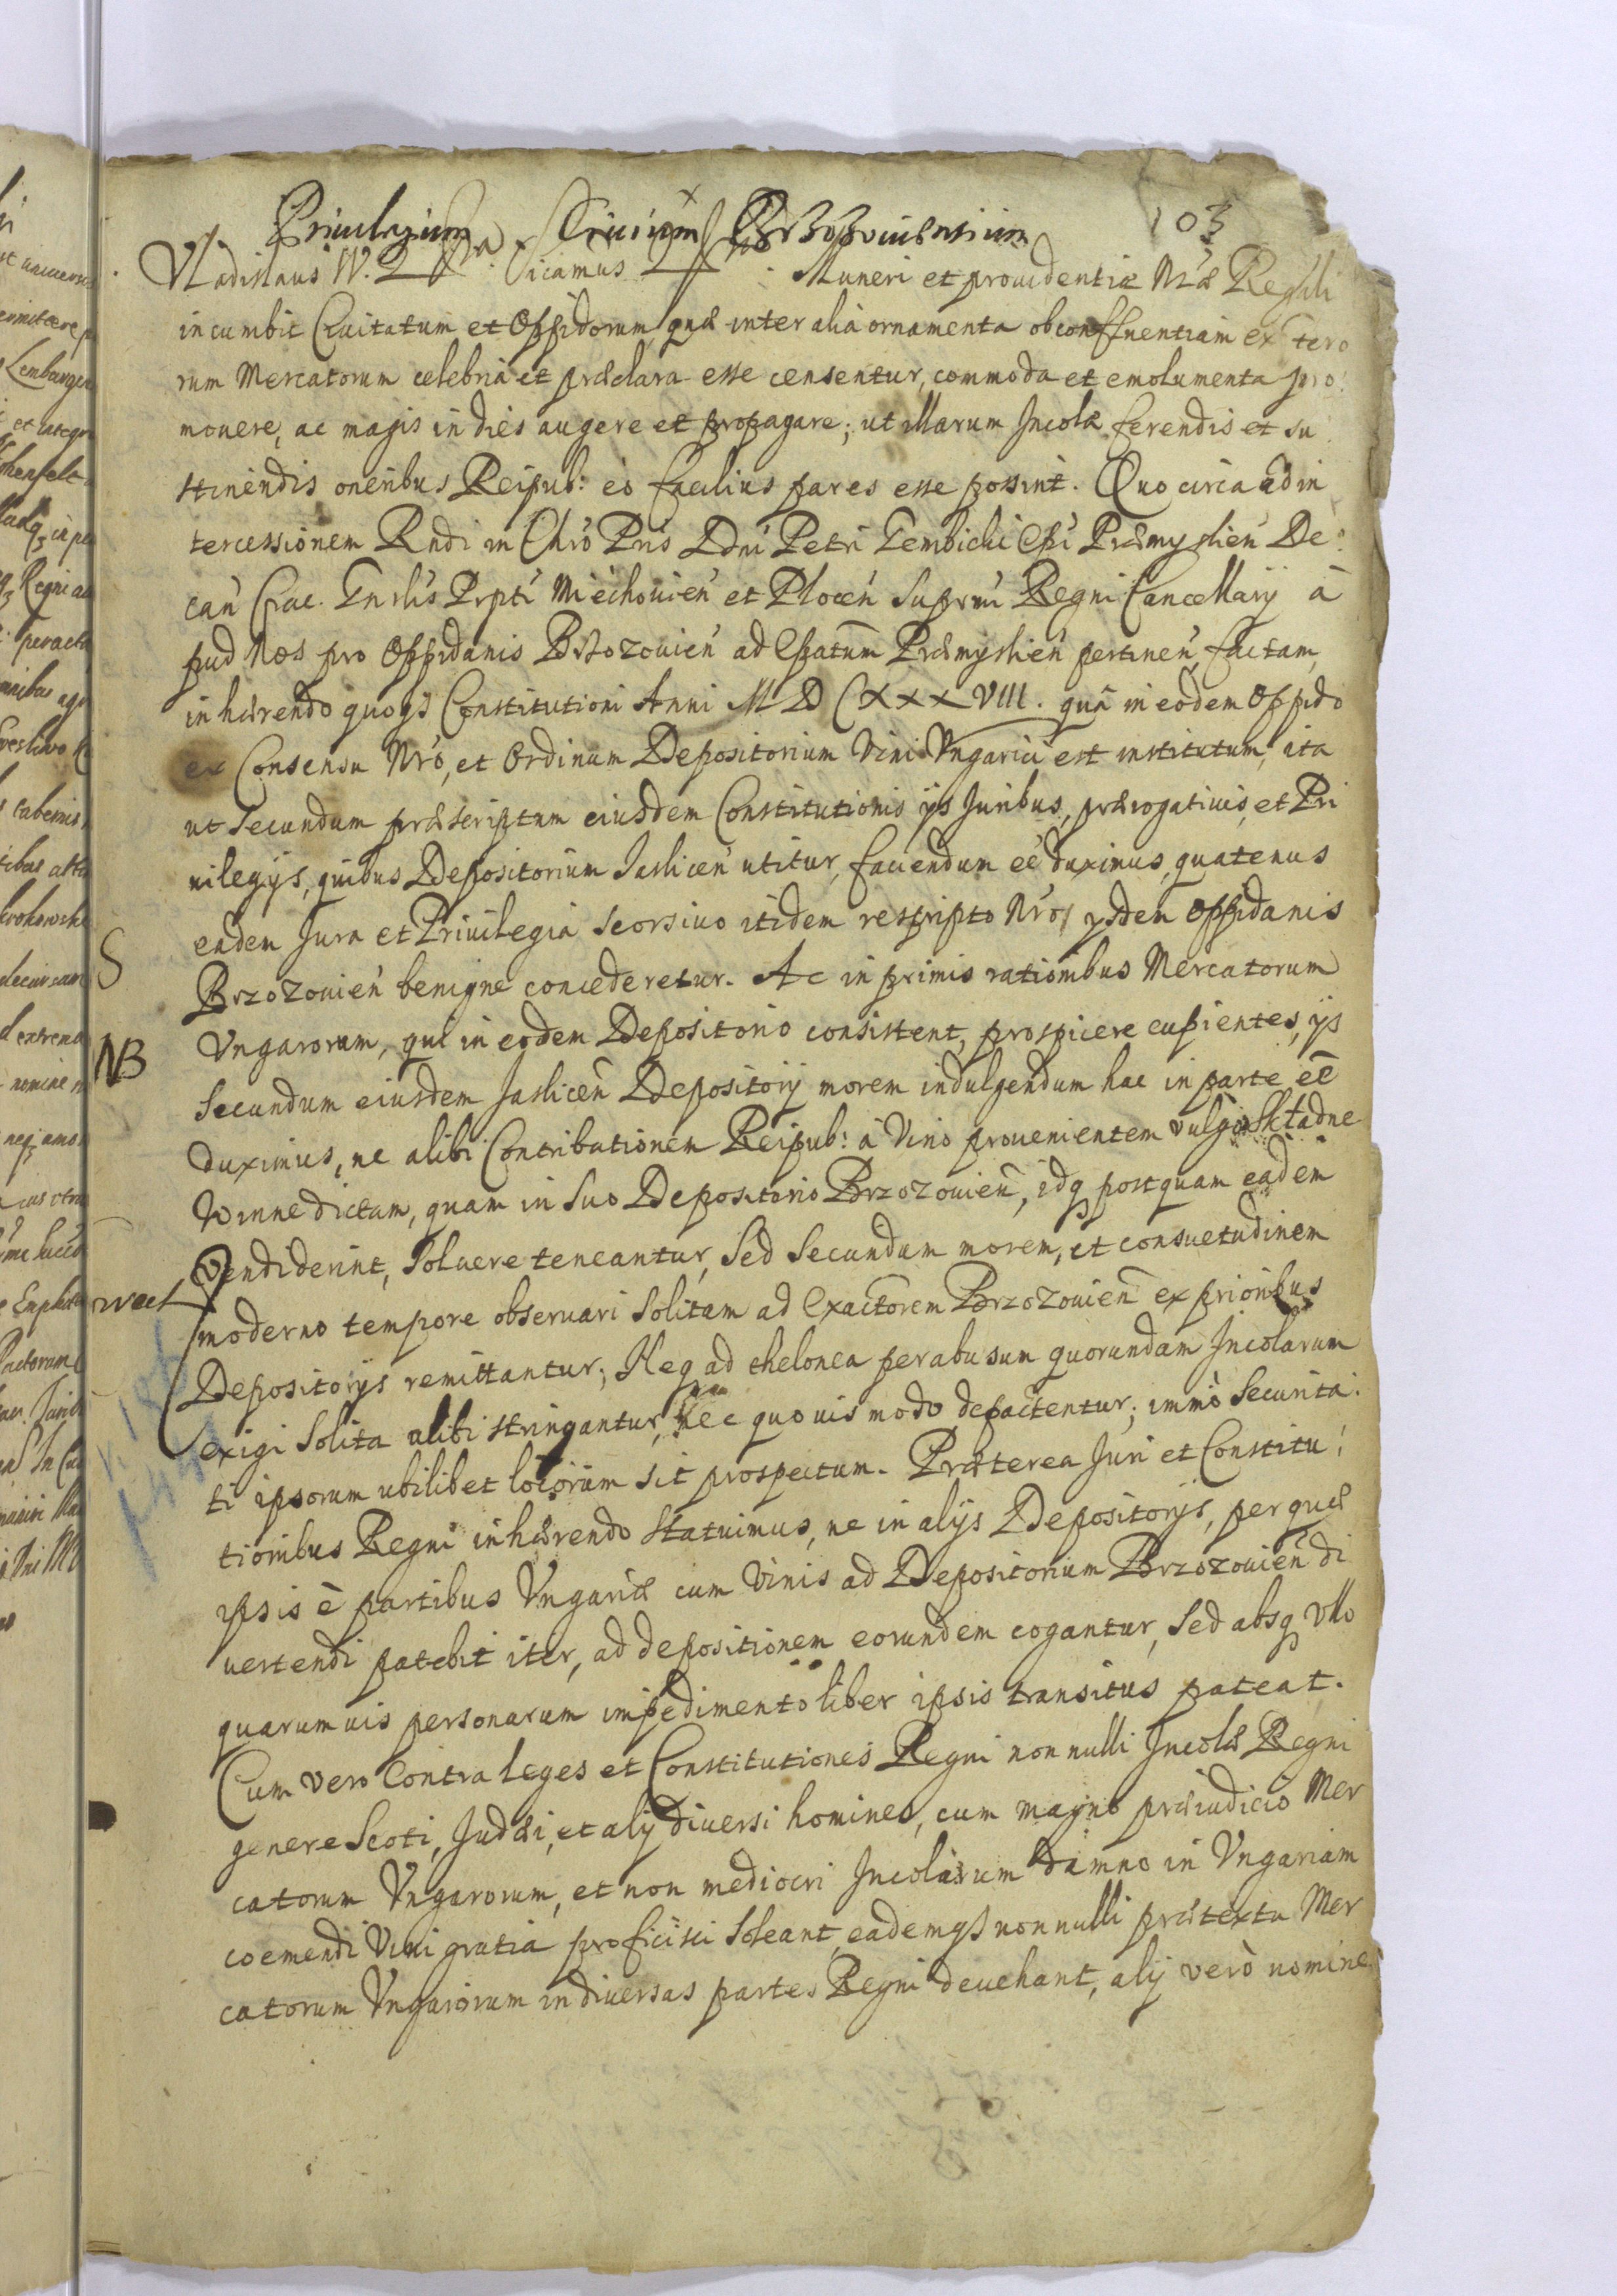 103
Priuilegium Ciuium Brzozouiensium
Vladislaus IV. icamus Muneri et prouidentiæ Nræ Regali
incumbit Ciuitatum et Oppidorum, quæ inter alia ornamenta ob confluentiam extero
rum Mercatorum celebria et præclara esse censentur, commoda et emolumenta pro:
mouere, ac magis in dies augere et propagare; ut illarum Incolæ ferendis et su
stinendis oneribus Reipub: eò facilius pares esse possint. Quo circa ad in
tercessionem Rndi in Chro Pris Dni Petri Gembicki Epi Præmyslien De:
can Crac. Gnrlis Prpti Miechouien et Plocen Supremi Regni Cancellarij à
pud Nos pro Oppidanis Brzozouien ad Epatum Præmyslien pertinen, factam,
inhærendo quoqз Constitutioni Anni M D C XXXVIII. quâ in eodem Oppido
ex Consensu Nro, et Ordinum Depositorium Vini Vngarici est institutum, ita
ut secundum præscriptum eiusdem Constitutionis ijs Juribus, prærogatiuis, et Pri
uilegijs, quibus Depositorium Jaslicen utitur, faciendum eê duximus, quatenus
eadem Jura et Priuilegia seorsiuo itidem rescripto Nro, ijsdem Oppidanis
Brzozouien benigne concederetur. Ac in primis rationibus Mercatorum
NB
Vngarorum, qui in eodem Depositorio consistent, prospicere cupientes, ijs
Secundum eiusdem Jaslicen Depositorij morem indulgendum hac in parte eê
duximus, ne alibi Contributionem Reipub: à Vino prouenientem vulgo Składne
Winne dictam, quam in suo Depositorio Brzozouien, idq postquam eadem
vendiderint, soluere teneantur, sed secundum morem, et consuetudinem
moderno tempore obseruari solitam ad Exactorem Brzozouien ex prioribus
Depositorijs remittantur; Neq ad thelonea per abusum quorundam Incolarum
exigi solita alibi stringantur, nec quouis modo depactentur; immò securita:
ti ipsorum ubilibet locorum sit prospectum. Præterea Juri et Constitu:
tionibus Regni inhærendo statuimus, ne in alijs Depositorijs, per quæ
ipsis è partibus Vngariæ cum Vinis ad Depositorium Brzozouien di
uertendi patebit iter, ad depositionem eorundem cogantur, sed absq vllo
quarumuis personarum impedimento liber ipsis transitus pateat.
Cum vero Contra leges et Constitutiones Regni nonnulli Incolæ Regni
genere Scoti, Judæi, et alij diuersi homines, cum magno præiudicio Mer
catorum Vngarorum, et non mediocri Incolarum damno in Vngariam
coemendi Vini gratia proficisci soleant, eademqз nonnulli prætextu Mer
catorum Vngarorum in diuersas partes Regni deuehant, alij verò nomine